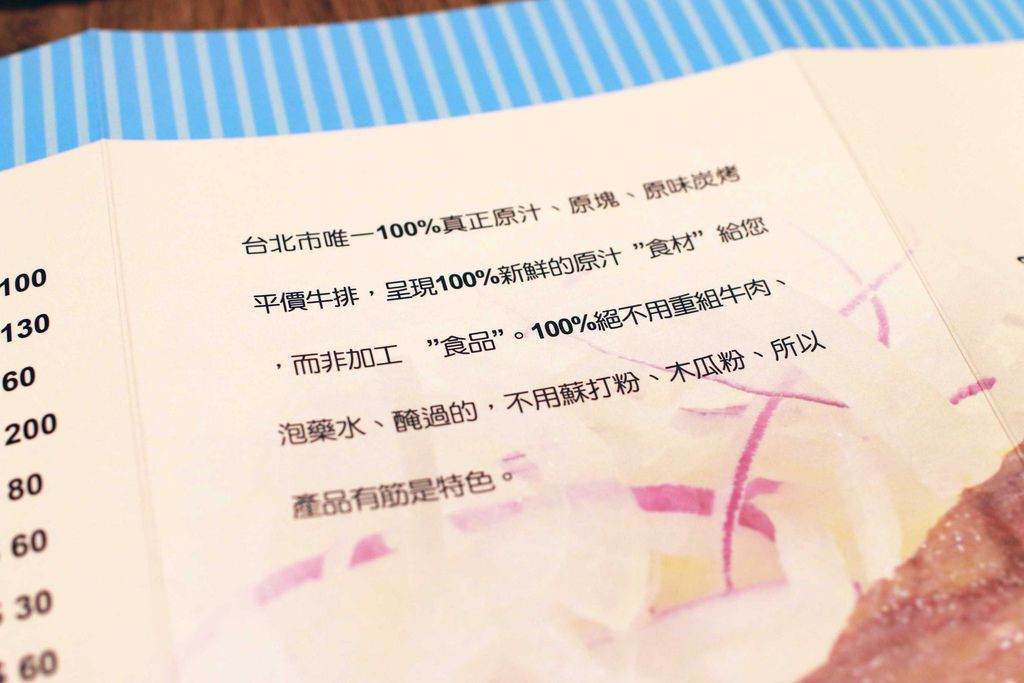 台北市唯一100%真正原汁、原塊、原味炭烤
平價牛排，呈現100%新鮮的原汁 ”食材” 給您
，而非加工 ”食品”。100%絕不用重組牛肉、
泡藥水、醃過的，不用蘇打粉、木瓜粉、所以
產品有筋是特色。
100
130
60
200
80
60
30
60